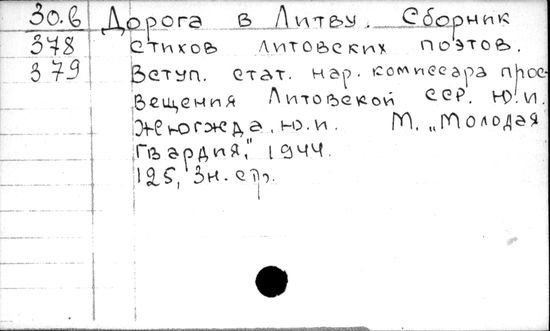 30.6 Дорога в Литву. Сборник
378 стихов литовских поэтов.
379 Вступ. стат. нар. комиссара прос-
вещения Литовской ССР. Ю.И.
Жюгжда, Ю.И. М. „Молодая
Гвардия," 1944.
125, 3н. стр.